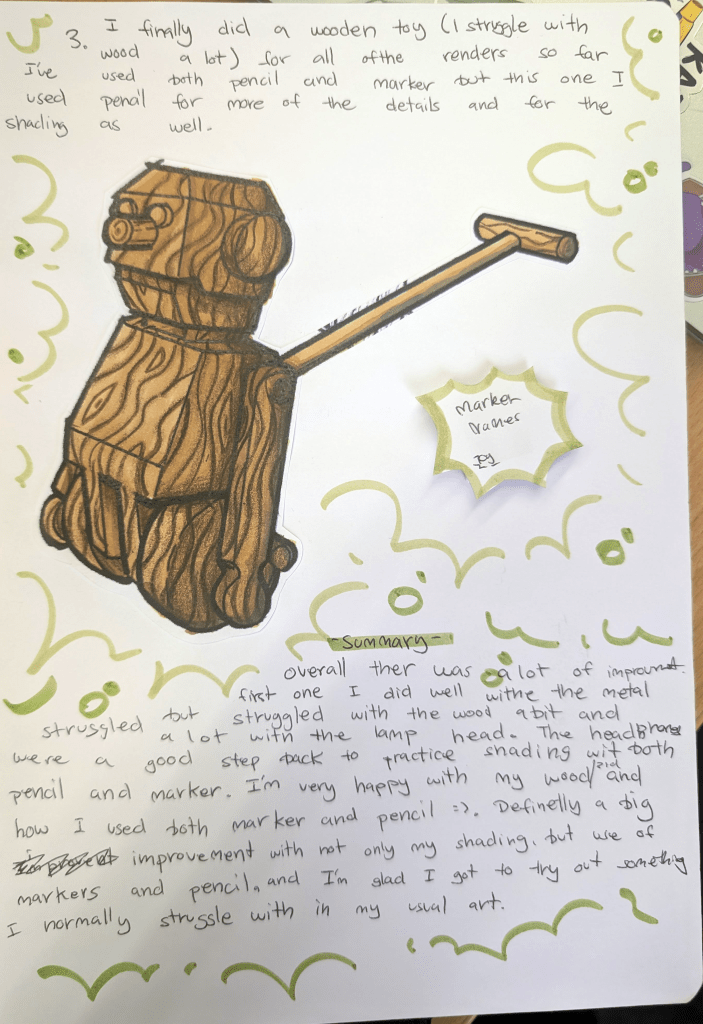 3. I finally did a wooden toy (I struggle with
wood a lot) for all ofthe renders so far
I've used both pencil and marker but this one I
used pencil for more of the details and for the
shading as well.
Marker
Names
- Summary -
overall ther was a lot of
first one I did well withe the metal
struggled but struggled with the wood abit and
a lot with the lamp head. The headphones
were a good step back to practice shading wit both
pencil and marker. I'm very happy with my wood and
how I used both marker and pencil =). Definelly a big
improvement with not only my shading, but use of
markers and pencil, and I'm glad I got to try out something
I normally struggle with in my usual art.